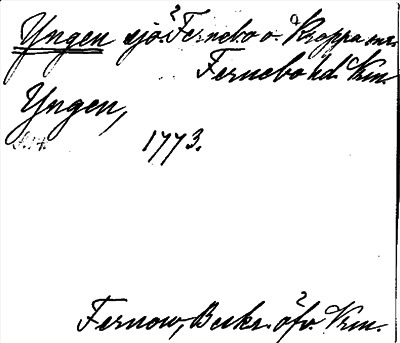 Yngen sjö i Fernebo o. Kroppa snr.
Fernebo hd. Vrm.
Yngen,
1773.
Fernow, Beskr. öfv. Vrm.